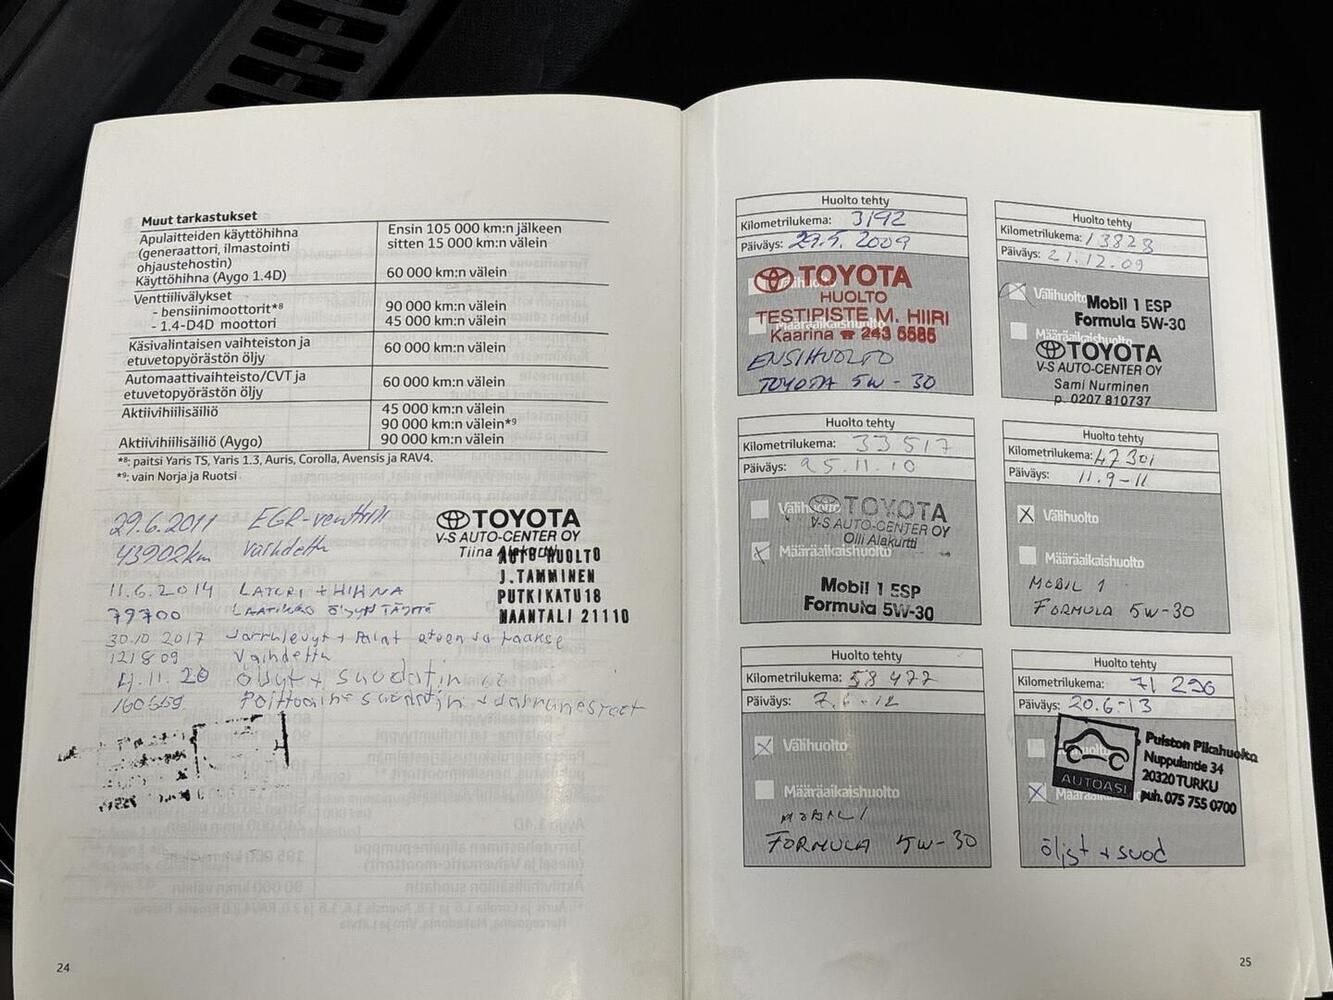 Muut tarkastukset
Apulaitteiden käyttöhihna
(generaattori, ilmastointi
ohjaustehostin)
Käyttöhihna (Aygo 1.4D)
Ensin 105 000 km:n jälkeen
sitten 15 000 km:n välein
60 000 km:n välein
Venttiilivälykset
- bensiinimoottorit*8
- 1.4-D4D moottori
90 000 km:n välein
45 000 km:n välein
Käsivalintaisen vaihteiston ja
etuvetopyörästön öljy
60 000 km:n välein
Automaattivaihteisto/CVT ja
etuvetopyörästön öljy
60 000 km:n välein
Aktiivihiilisäiliö
Aktiivihiilisäiliö (Aygo)
45 000 km:n välein
90 000 km:n välein*9
90 000 km:n välein
*8; paitsi Yaris TS, Yaris 1.3, Auris, Corolla, Avensis ja RAV4.
*9; vain Norja ja Ruotsi
29.6.2011 EGR-venttiili
43902km vaihdettu
TOYOTA
V-S AUTO-CENTER OY
Tiina Alakurtti
AUTO HUOLTO
J.TAMMINEN
PUTKIKATU 18
NAANTALI 21110
11.6.2014 LATURI + HIHNA
79700
30.10 2017 Jarrulevyt + Palat eteen ja taakse
121809 Vaihdettu
11.20 öljyt + suodatin
160559
24
Huolto tehty
Kilometrilukema: 3192
Päiväys: 29.5. 2009
Välihuolto
Määräaikaishuolto
TOYOTA
HUOLTO
TESTIPISTE M. HIIRI
Kaarina ☎ 243 6686
ENSIHUOLTO
TOYOTA 5W-30
Huolto tehty
Kilometrilukema: 13823
Päiväys: 21.12.09
Välihuolto
Määräaikaishuolto
Mobil 1 ESP
Formula 5W-30
TOYOTA
V-S AUTO-CENTER OY
Sami Nurminen
p. 0207 810737
Huolto tehty
Kilometrilukema: 33517
Päiväys: 25.11.10
Välihuolto
TOYOTA
V-S AUTO-CENTER OY
Olli Alakurtti
Määräaikaishuolto
Mobil 1 ESP
Formula 5W-30
Huolto tehty
Kilometrilukema: 47301
Päiväys: 11.9-11
Välihuolto
Määräaikaishuolto
MOBIL 1
FORMULA 5W-30
Huolto tehty
Kilometrilukema: 58 477
Päiväys: 7.6-12
Välihuolto
Määräaikaishuolto
MOBIL 1
FORMULA 5W-30
Huolto tehty
Kilometrilukema: 71 296
Päiväys: 20.6-13
Välihuolto
Määräaikaishuolto
AUTOASI
Puiston Pikahuolto
Nuppulantie 34
20320 TURKU
puh. 075 755 0700
öljyt + suod
25